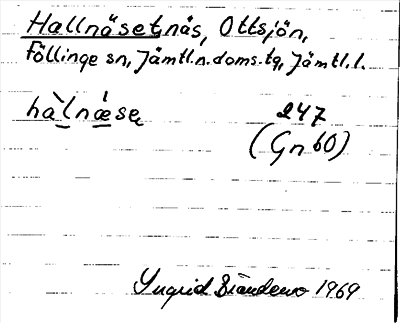 Hallnäsetnäs, Ottsjön,
Föllinge sn, Jämtl.n.doms.tg, Jämtl.l.
hàlnæ̀se 247
(Gn 60)
Yngrid 1969